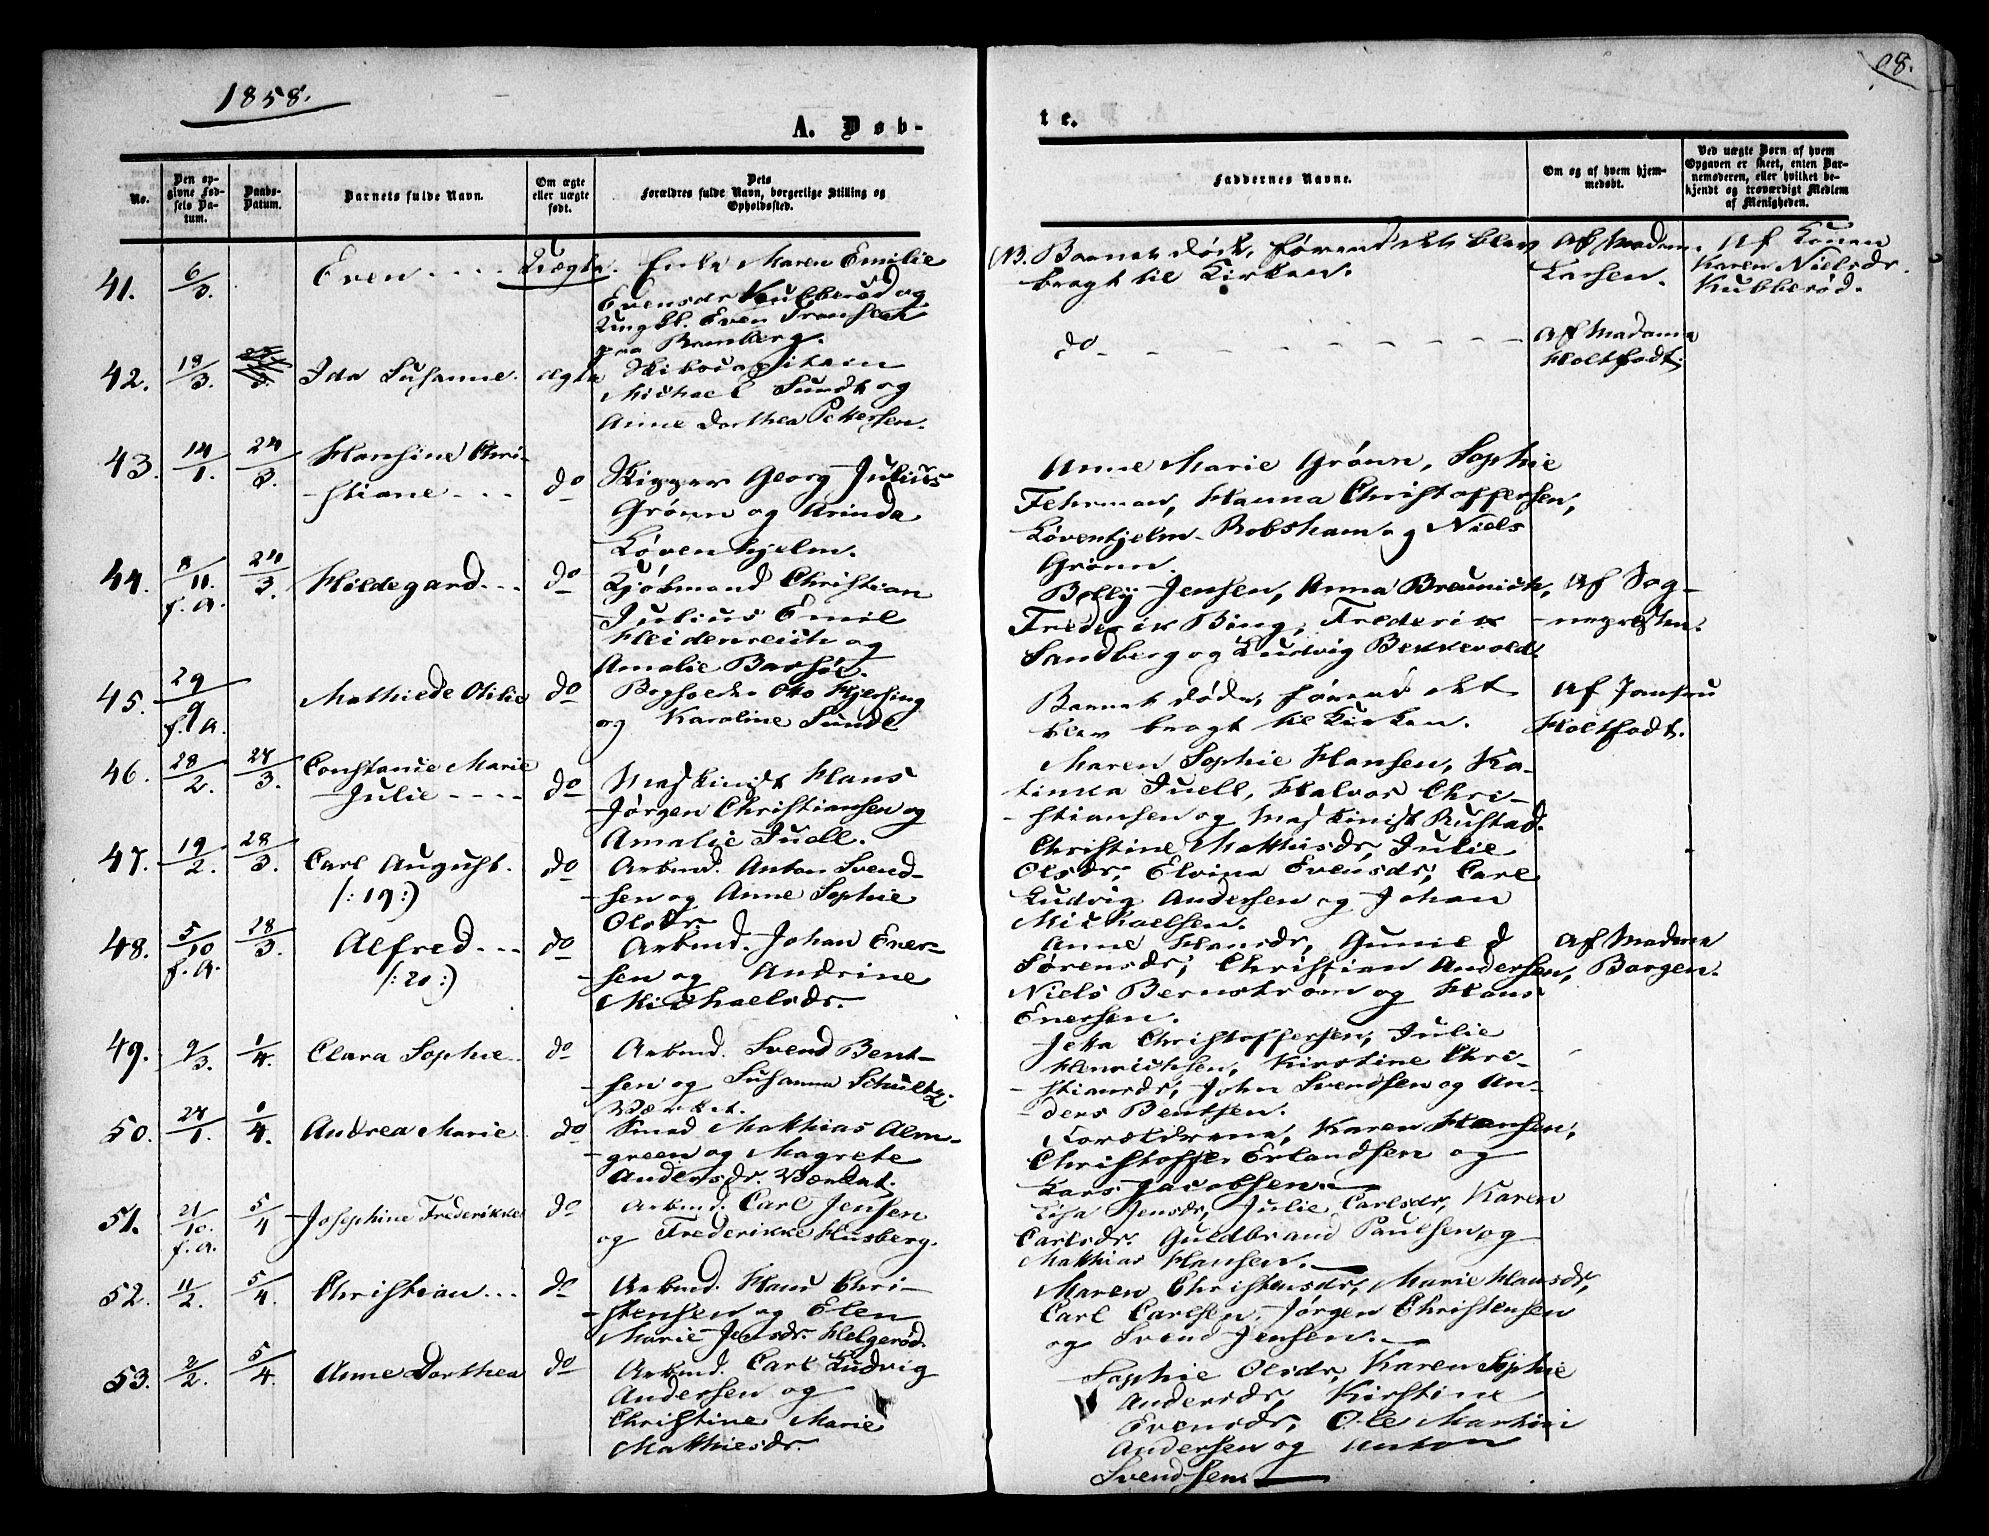 1858.
98.
A. Døb-
te.
No.
Den op-
givne Fød-
sels Da-
tum.
Daabs-
Datum.
Barnets fulde Navn.
Om ægte
eller uægte
født.
Dets
Forældres fulde Navn, borgerlige Stilling og
Opholdssted.
Faddernes Navne.
Om og af hvem hjem-
medøbt.
Ved uægte Børn af hvem
Opgaven er skeet, enten Bar-
nemoderen, eller hvilket be-
kjendt og troværdigt Medlem
af Menigheden.
41. 6/3. Even Uægte. Enke Maren Emilie
Evensdr Kubberød og
Ungk. Even Fransen
fra Bamberg.
NB. Barnet døde, førend det blev
bragt til Kirken.
Af Madam
Larsen.
Af Konen
Karen Nielsdr.
Kubberød.
42. 18/3. Ida Susanne. ægte Skibscapitain
Michael Sundt og
Anne Dorthea Petersen.
do
Af Madame
Holtfodt.
43. 14/1. 24/3. Hansine Chri-
stiane do Rigger Georg Julius
Grønn og Arinda
Løvenhjelm.
Anne Marie Grønn, Sophie
Fehrman, Hanna Christoffersen,
Løvenhjelm Robsham og Niels
Grønn.
44. 8/11. f.a. 24/3. Hildegard do Kjøbmand Christian
Julius Emil
Heidenreich og
Amalie Barhoe.
Bolly Jensen, Anna Breunich,
Frederik Bing, Frederik
Sandberg og Ludvig Bekkevold.
Af Sog-
nepresten.
45. 29/9 f.a. Mathilde Otilie do Bogholder Otto Hjersing
og Karoline Sundt
Barnet døde, førend det
blev bragt til Kirken.
Af Jomfru
Holtfodt.
46. 28/2. 27/3. Constance Marie
Julie do Maskinist Hans
Jørgen Christiansen og
Amalie Juell.
Maren Sophie Hansen, Ka-
tinka Juell, Halvor Chri-
stiansen og Maskinist Rustad.
47. 19/2. 28/3. Carl August.
/:19:) do Arbmd. Anton Svend-
sen og Anne Sophie
Olsdr
Christine Mathisdr, Julie
Olsdr, Elvina Evensdr, Carl
Ludvig Andersen og Johan
Michaelsen.
48. 5/10 f.a. 28/3. Alfred
/:20:) do Arbmd. Johan Ener-
sen og Andrine
Michaelsdr.
Anne Hansdr, Gunild
Sørensdr, Christian Andersen,
Niels Bernstrøm og Hans
Enersen.
Af Madame
Borgen.
49. 9/3. 1/4. Clara Sophie do Arbmd. Svend Bent-
sen og Susanna Schultz.
Værket.
Jetta Christoffersen, Julie
Henrichsen, Kirstine Chri-
stiansdr, John Svendsen og An-
ders Bentsen.
50. 27/1. 1/4. Andrea Marie do Smed Mathias Alm-
green og Magrete
Andersdr. Værket.
Forældrene, Karen Hansen,
Christoffer Erlandsen og
Lars Jacobsen.
51. 21/10. f.a. 5/4 Josephine Frederikke do Arbmd. Carl Jensen
og Frederikke Husberg.
Lisa Jensdr, Julie Carlsdr, Karen
Carlsdr. Guldbrand Paulsen og
Mathias Hansen.
52. 11/2. 5/4. Christian do Arbmd. Hans Chri-
stensen og Elen
Marie Jensdr. Helgerød.
Maren Christensdr, Marie Hansdr,
Carl Carlsen, Jørgen Christensen
og Svend Jensen.
53. 2/2. 5/4. Anne Dorthea do Arbmd. Carl Ludvig
Andersen og
Christine Marie
Mathiesdr.
Sophie Olsdr, Karen Sophie
Andersdr, Kirstine
Evensdr, Ole Martin
Andersen og Anton
Svendsen